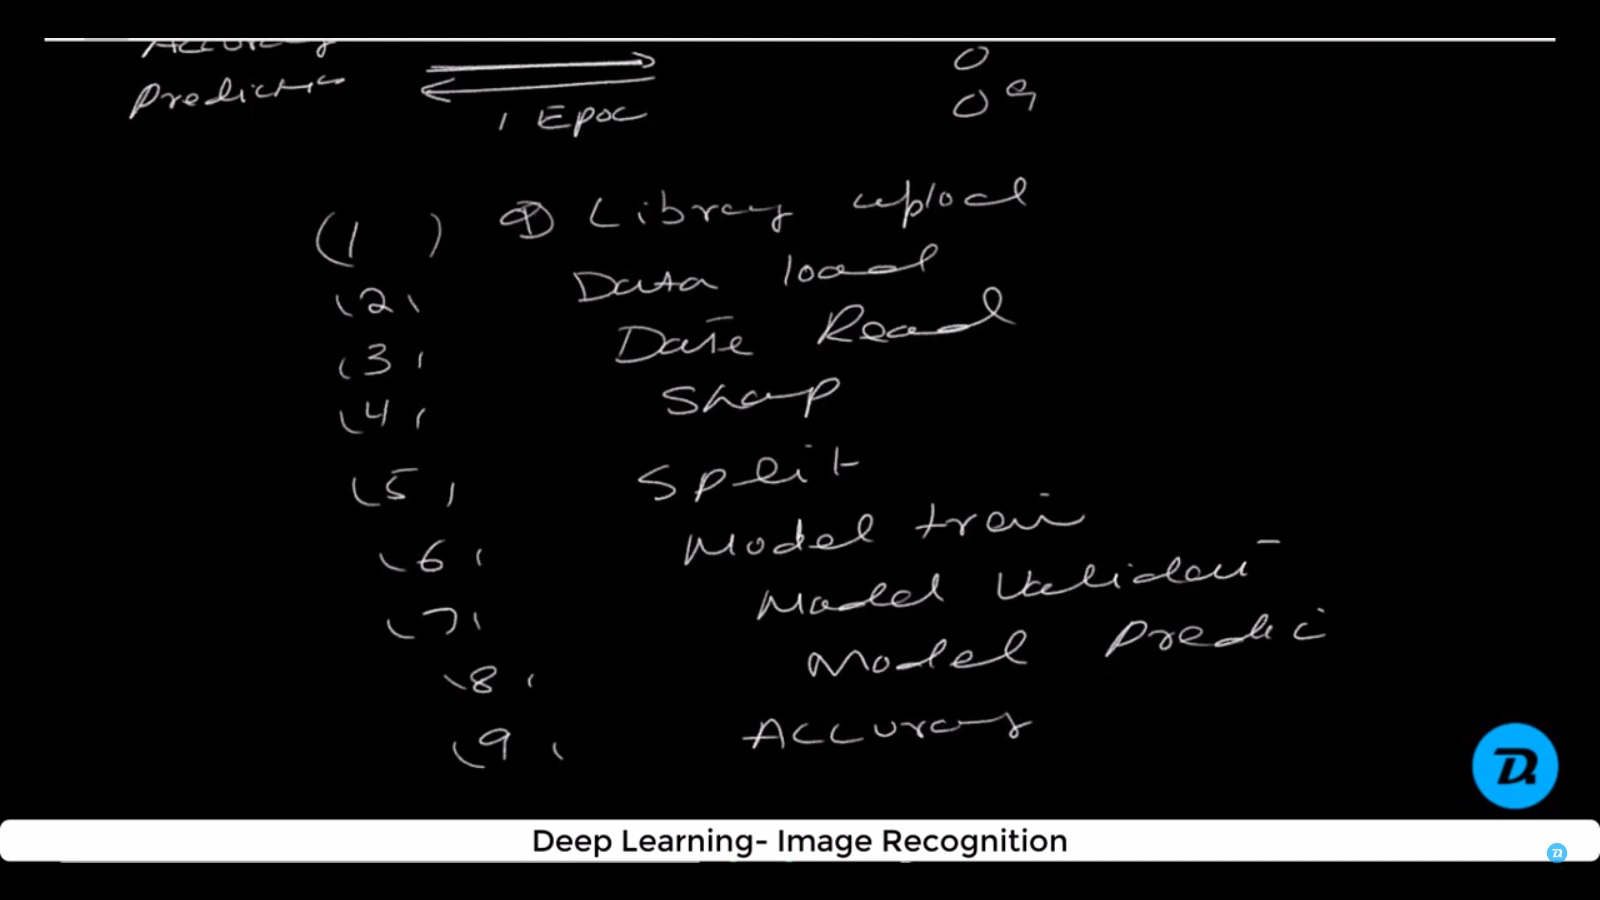 Accuracy
Prediction
1 Epoc
0
0 9
(1) ① Library upload
(2) Data load
(3) Date Read
(4) Shap
(5) Split
(6) Model train
(7) Model Validat
(8) Model Predic
(9) Accuracy
Deep Learning- Image Recognition